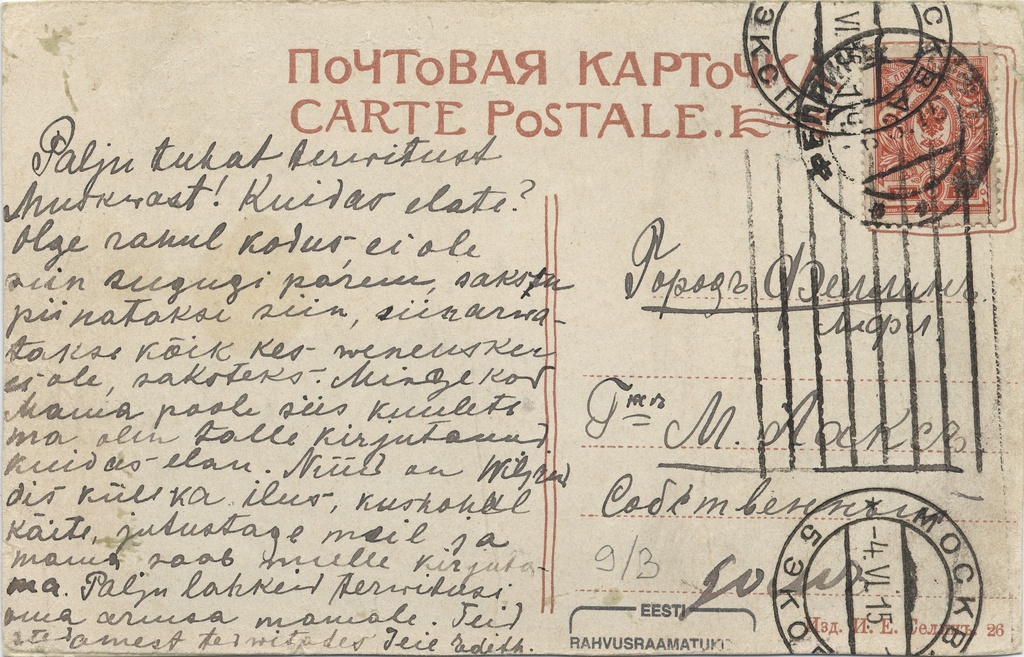 ПОЧТОВАЯ КАРТОЧКА
CARTE POSTALE.
Palju tuhat terwitust
Muskwast! Kuidas elate?
olge rahul kodus, ei ole
siin sugugi parem, saksu
piinatakse siin, siinarwa-
takse kõik kes weneusku
ei ole, saksteks. Minge kor
Mama poole siis kuulete
ma olin talle kirjutanud
kuidas elan. Nüüd on Wiljandis
küll ka ilus, kuskohal
käite, jutustage meil ja
mama saab mulle kirjuta-
ma. Palju lahkeid terwitusi
oma armsa mamale. Teid
südamest terwitades Teie Edith.
Городъ Феллинъ
Лифл.
М. Лаксъ
Собственный
домъ
9/3
EESTI
RAHVUSRAAMATUK
МОСКВА
-4.VI.15
5 ЭКСП
Изд. И. Е. Селинъ. 26